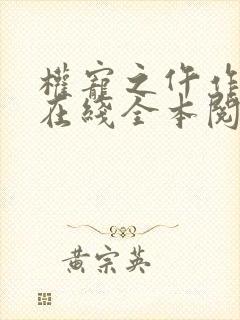 權寵之仵作
在綫全本閱
黃宗英